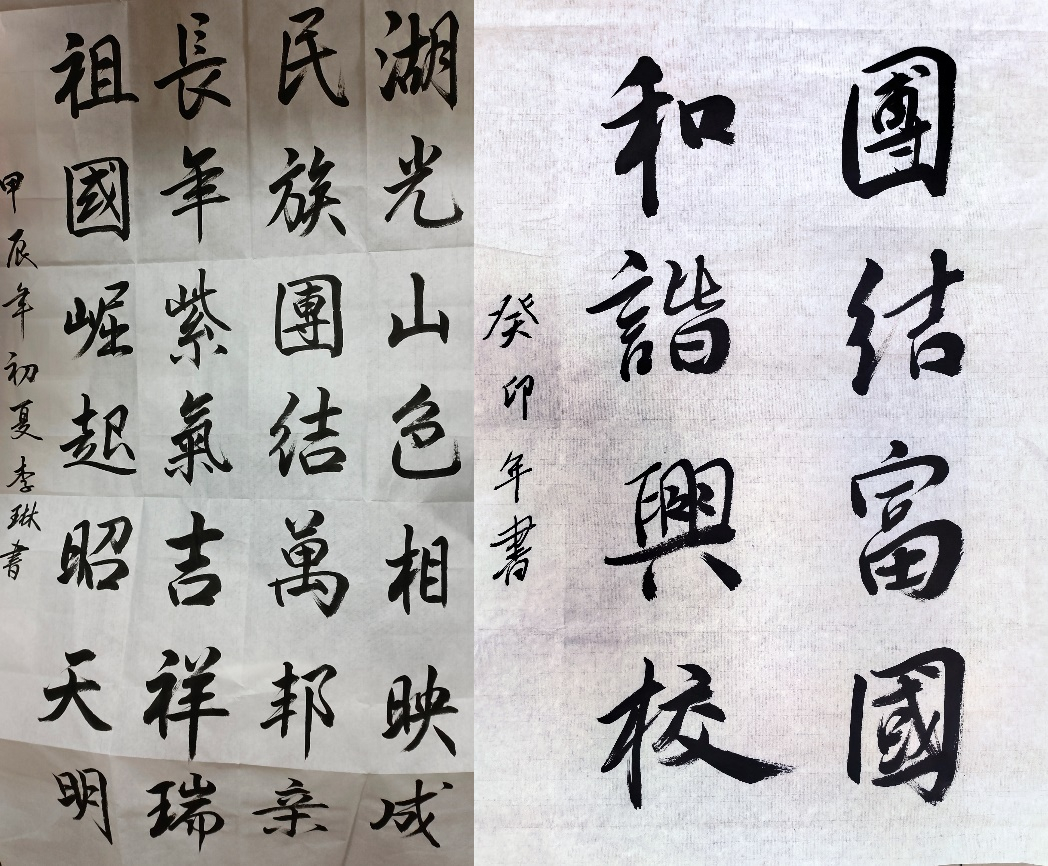 湖光山色相映成
民族團结萬邦亲
長年紫氣吉祥瑞
祖國崛起昭天明
甲辰年初夏李琳書
團结富國
和諧興校
癸卯年書